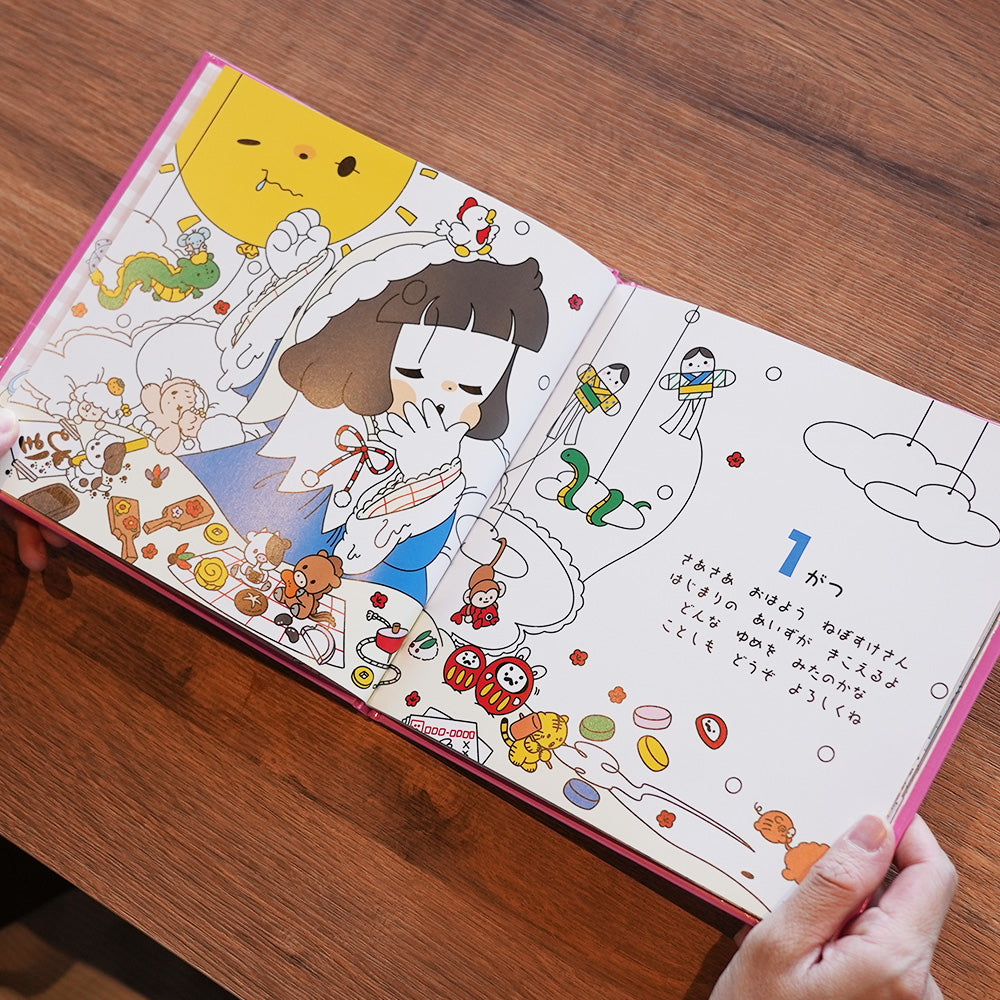 1がつ
さあさあ おはよう ねぼすけさん
はじまりの あいずが きこえるよ
どんな ゆめを みたのかな
ことしも どうぞ よろしくね